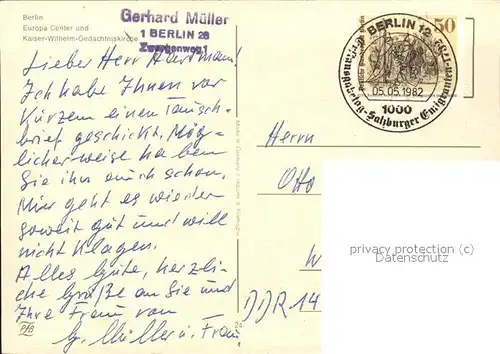 Berlin
Europa Center und
Kaiser-Wilhelm-Gedächtniskirche
Gerhard Müller
1 BERLIN 28
Zwergenweg 1
Lieber Herr Hartmann!
Ich habe Ihnen vor
Kürzem einen Tausch-
brief geschickt. Mög-
licherweise haben
Sie ihn auch schon.
Mir geht es wieder
soweit gut und will
nicht klagen.
Alles Gute, herzli-
che Grüße an Sie und
Ihre Frau von
G. Müller u. Frau
P/B
24
BERLIN 12
50
05.05.1982
1000
Salzburger Emigranten
Herrn
Otto
W
DDR 14
privacy protection
Datenschutz